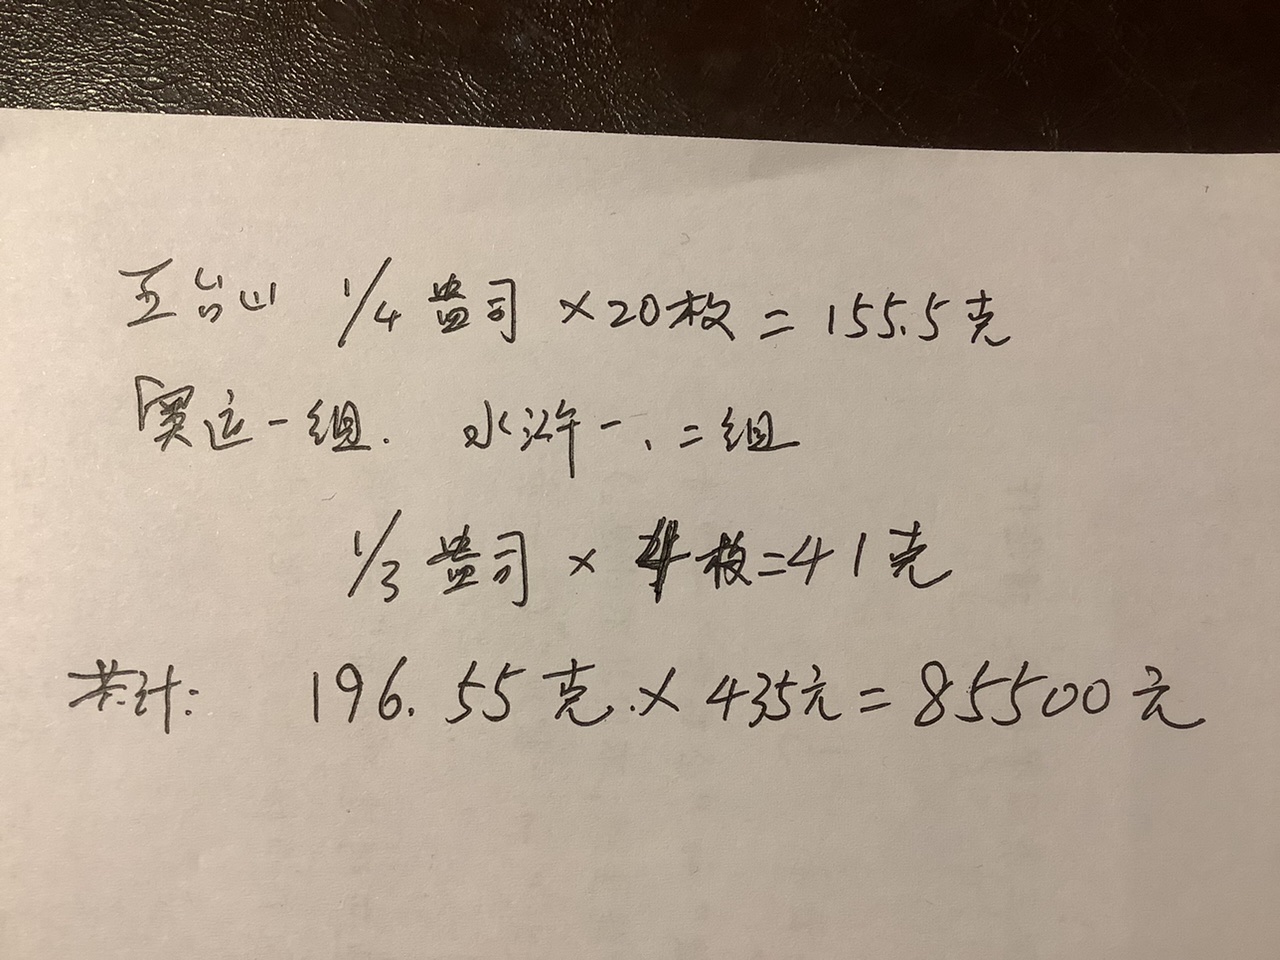 五台山 1/4 盎司 ×20枚 = 155.5克
奥运一组. 水浒一、二组
1/3 盎司 × 4枚=41克
共计: 196.55克.×435元=85500元